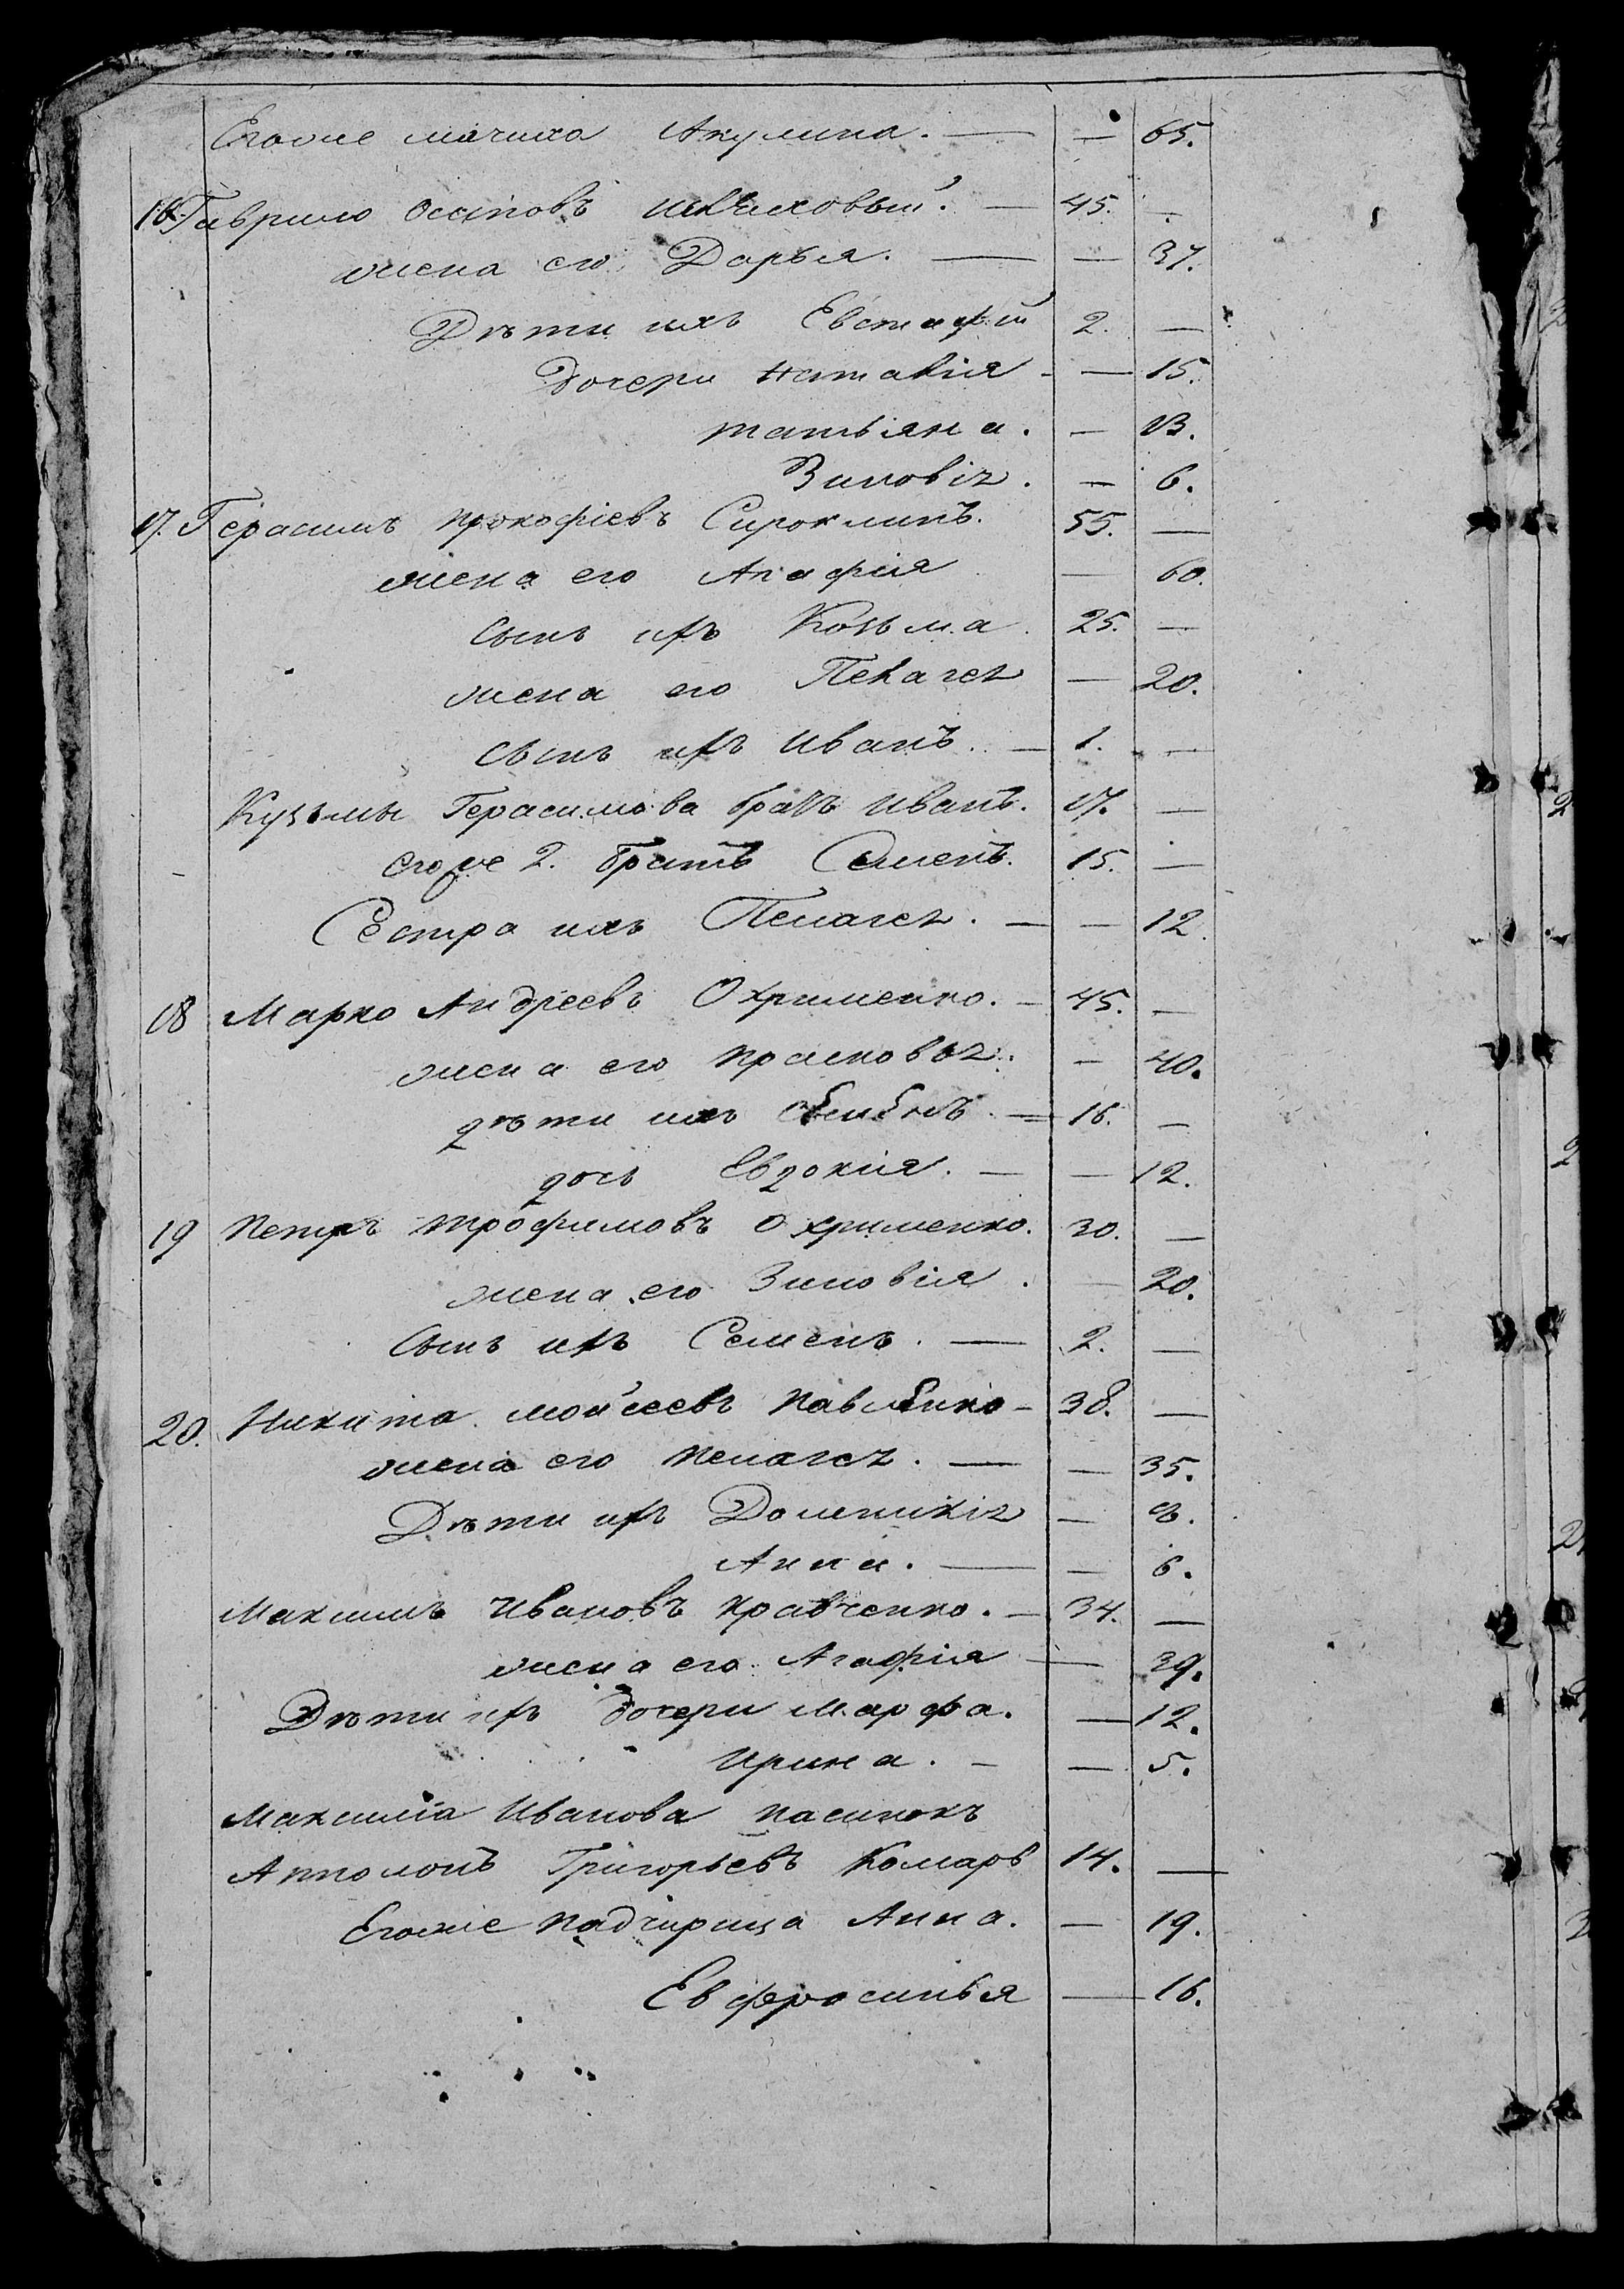 Егоже мачиха Акулина. — — 65.
16. Гаврило Осиповъ — 45. —
жена его Дарья. — — 37.
Дѣти ихъ Евстафій 2. —
Дочери Наталія - — 15.
татьяна. — 13.
Зиновія. — 6.
17. Герасимъ прокофіевъ 55. —
жена его Агафія — 60.
сынъ ихъ Козьма 25. —
жена его Пелагея — 20.
сынъ ихъ Иванъ. — 1. —
Кузьмы Герасимова братъ Иванъ. 17. —
егоже 2. братъ Семенъ. 15. —
Сестра ихъ Пелагея. — — 12.
18 Марко Андреевъ Охрименко. — 45. —
жена его прасковья. — 40.
дѣти ихъ — 16. —
дочь Евдокія. — — 12.
19 Петръ трофимовъ Охрименко. 30. —
жена его Зиновія. — 20.
Сынъ ихъ Семенъ. — 2. —
20. Никита мойсеевъ павленко — 38. —
жена его пелагея. — — 35.
Дѣти ихъ Доминикія — 8.
Анна. — — 6.
Максимъ Ивановъ кравченко. — 34. —
жена его Агафія — — 39.
Дѣти ихъ дочери марфа. — 12.
Ирина. — — 5.
Максима Иванова пасинокъ
Апполонъ Григорьевъ Комаръ 14. —
Егоже падчирица Анна. — 19.
Евфросинья — 16.